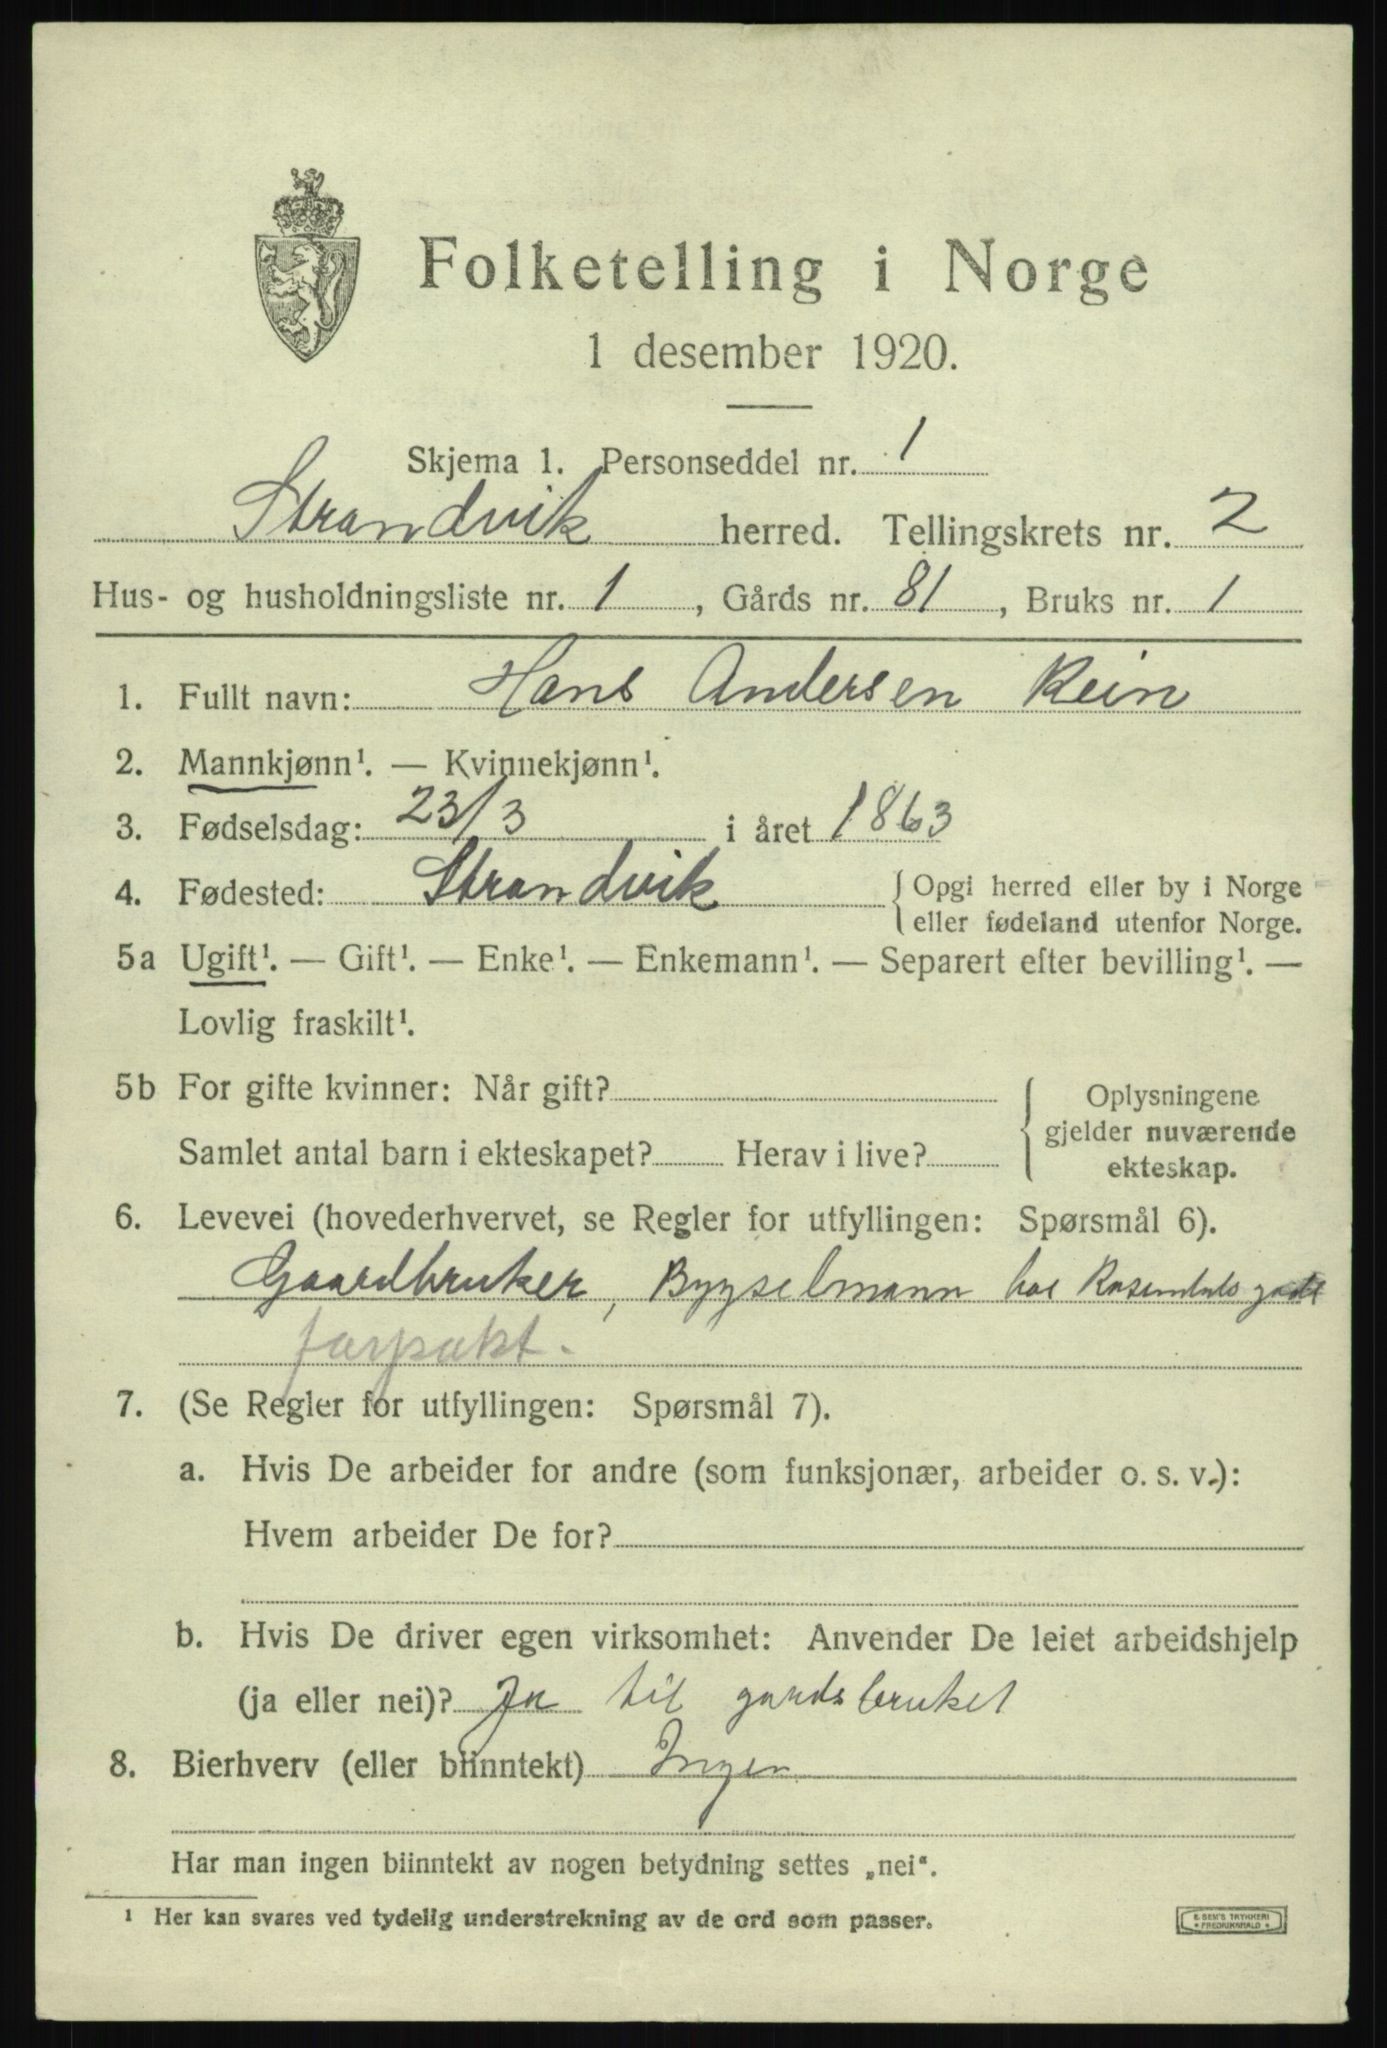 Folketelling i Norge
1 desember 1920.
Skjema 1. Personseddel nr. 1
Strandvik herred. Tellingskrets nr. 2
Hus- og husholdningsliste nr. 1, Gårds nr. 81, Bruks nr. 1
1. Fullt navn: Hans Andersen Rein
2. Mannkjønn¹. — Kvinnekjønn¹.
3. Fødselsdag: 23/3 i året 1863
4. Fødested: Strandvik { Opgi herred eller by i Norge
eller fødeland utenfor Norge.
5a Ugift¹. — Gift¹. — Enke¹. — Enkemann¹. — Separert efter bevilling¹. —
Lovlig fraskilt¹.
5b For gifte kvinner: Når gift?
Samlet antal barn i ekteskapet? Herav i live?
{ Oplysningene
gjelder nuværende
ekteskap.
6. Levevei (hovederhvervet, se Regler for utfyllingen: Spørsmål 6).
Gaardbruker, Bygselmann hos Rosendals
forpakt.
7. (Se Regler for utfyllingen: Spørsmål 7).
a. Hvis De arbeider for andre (som funksjonær, arbeider o. s. v.):
Hvem arbeider De for?
b. Hvis De driver egen virksomhet: Anvender De leiet arbeidshjelp
(ja eller nei)? Ja til gardsbruket
8. Bierhverv (eller biinntekt) Ingen
Har man ingen biinntekt av nogen betydning settes „nei“.
¹ Her kan svares ved tydelig understrekning av de ord som passer.
E. SEM'S TRYKKERI
FREDRIKSHALD